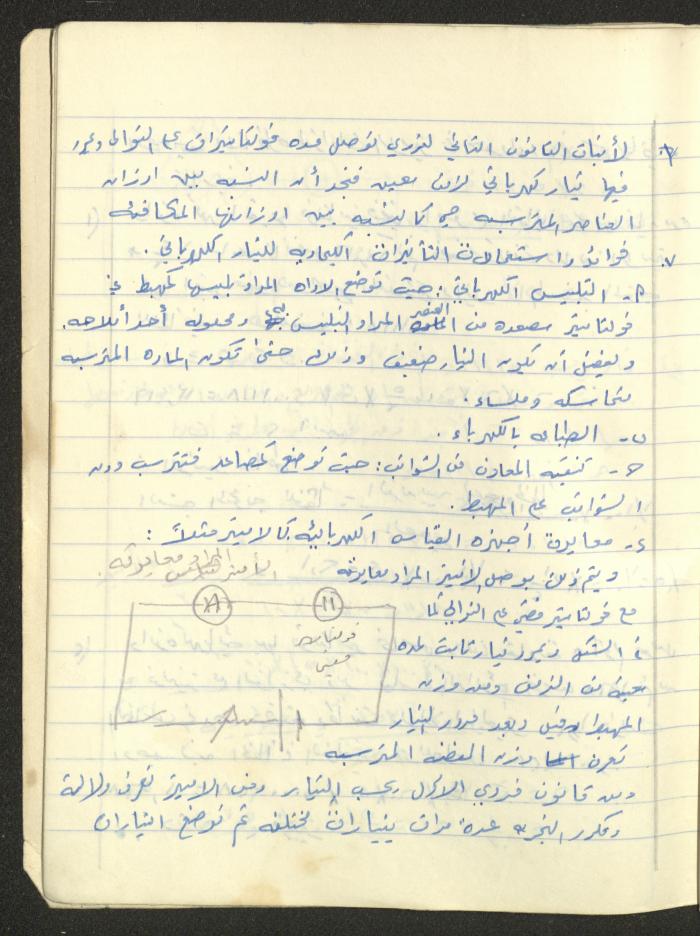 ٦- لأثبات القانون الثاني لفردي نوصل عدة فولتامترات على التوالي ونمرر
فيها تيار كهربائي لزمن معين فنجد أن النسبه بين اوزان
العناصر المترسبه هي كالنسبه بين اوزانها المكافئه
٧- فوائد واستعمالات التأثيرات الكيماويه للتيار الكهربائي.
أ- التلبيس الكهربائي: حيث توضع الاداه المراد تلبيسها كمهبط في
فولتامتر مصعده من العنصر المراد التلبيس به ومحلوله أحد أملاحه.
ويفضل أن يكون التيار ضعيف وذلك حتى تكون الماده المترسبه
متماسكه وملساء.
ب- الطباعه بالكهرباء.
ح- تنقيه المعادن من الشوائب: حيث توضع كمصاعد فتترسب دون
الشوائب على المهبط.
د- معايرة أجهزه القياس الكهربائيه كالاميتر مثلاً:
ويتم ذلك بوصل الاميتر المراد معايرته
الأميتر المراد معايرته
مع فولتامتر فضي على التوالي كما
A
فولتامتر
معين
في الشكل ويمرر تيار ثابت لمده
معينه من الزمن ومن وزن
المهبط قبل وبعد مرور التيار
نعرف وزن الفضه المترسبه
ومن قانون فردي الاول يحسب التيار ومن الاميتر نعرف دلالته
ونكرر التجربه عدة مرات بتيارات مختلفه ثم توضع التيارات